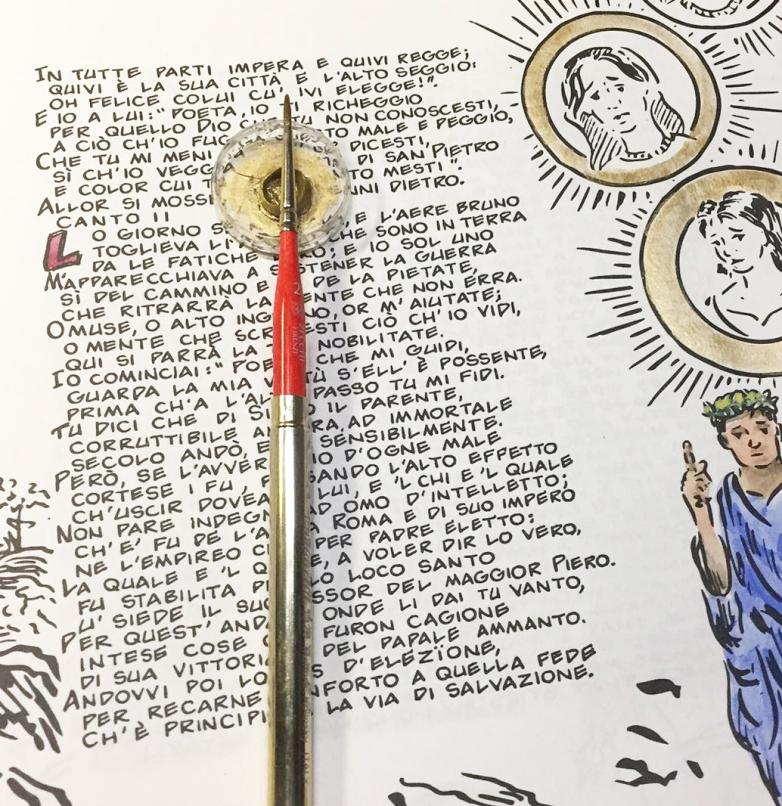 IN TUTTE PARTI IMPERA E QUIVI REGGE;
QUIVI È LA SUA CITTÀ E L'ALTO SEGGIO:
OH FELICE COLUI CU' IVI ELEGGE!".
E IO A LUI: "POETA, IO TI RICHEGGIO
PER QUELLO DIO CHE TU NON CONOSCESTI,
A CIÒ CH'IO FUGGA QUESTO MALE E PEGGIO,
CHE TU MI MENI DICESTI,
SÌ CH'IO VEGG DI SAN PIETRO
E COLOR CUI T TO MESTI".
ALLOR SI MOSS NNI DIETRO.
CANTO II
LO GIORNO S E L'AERE BRUNO
TOGLIEVA LI CHE SONO IN TERRA
DA LE FATICHE E IO SOL UNO
M'APPARECCHIAVA A SOSTENER LA GUERRA
SÌ DEL CAMMINO E DE LA PIETATE,
CHE RITRARRÀ LA MENTE CHE NON ERRA.
O MUSE, O ALTO INGEGNO, OR M'AIUTATE;
O MENTE CHE SCRIVESTI CIÒ CH'IO VIDI,
QUI SI PARRÀ LA NOBILITATE.
IO COMINCIAI: "POE CHE MI GUIDI,
GUARDA LA MIA VIRTÙ S'ELL' È POSSENTE,
PRIMA CH'A L'AL PASSO TU MI FIDI.
TU DICI CHE DI SI O IL PARENTE,
CORRUTTIBILE A RA, AD IMMORTALE
SECOLO ANDÒ, E SENSIBILMENTE.
PERÒ, SE L'AVVER IO D'OGNE MALE
CORTESE I FU, P SANDO L'ALTO EFFETTO
CH'USCIR DOVEA LUI, E 'L CHI E 'L QUALE
NON PARE INDEGN AD OMO D'INTELLETTO;
CH'E' FU DE L'A ROMA E DI SUO IMPERO
NE L'EMPIREO CI PER PADRE ELETTO:
LA QUALE E 'L Q E, A VOLER DIR LO VERO,
FU STABILITA P LO LOCO SANTO
U' SIEDE IL SUC SSOR DEL MAGGIOR PIERO.
PER QUEST' ANDA ONDE LI DAI TU VANTO,
INTESE COSE FURON CAGIONE
DI SUA VITTORIA DEL PAPALE AMMANTO.
ANDOVVI POI LO S D'ELEZÏONE,
PER RECARNE NFORTO A QUELLA FEDE
CH'È PRINCIPI LA VIA DI SALVAZIONE.